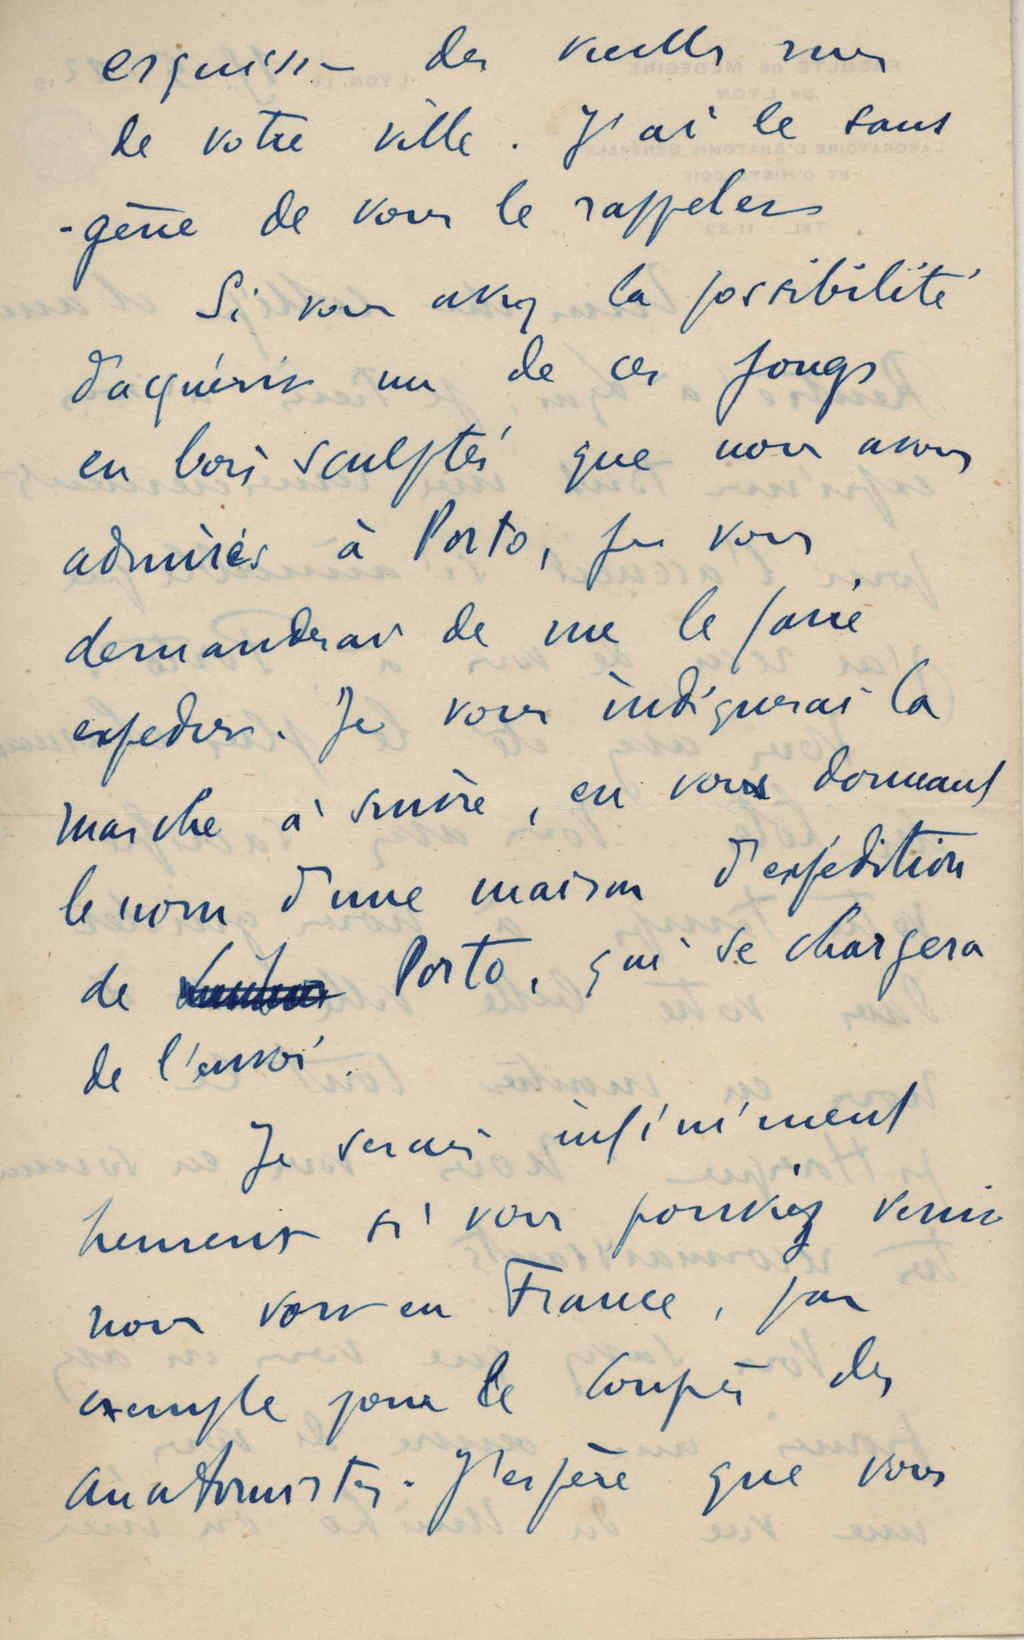 esquisse des vieilles rues
de votre ville. J'ai le sans
-gêne de vous le rappeler
Si vous avez la possibilité
d'acquérir un de ces jougs
en bois sculptés que nous avons
admirés à Porto, je vous
demanderai de me le faire
expédier. Je vous indiquerai la
marche à suivre, en vous donnant
le nom d'une maison d'expédition
de Porto, qui se chargera
de l'envoi.
Je serais infiniment
heureux si vous pouviez venir
nous voir en France, par
exemple pour le Congrès des
anatomistes. J'espère que vous